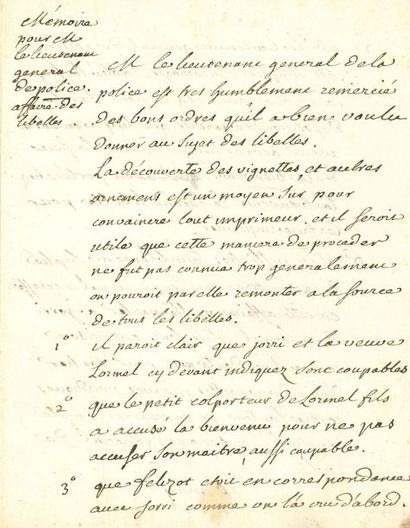 Mémoire
pour M
le lieutenant
general
de police.
affaire des
libelles
M le lieutenant general de la
police est tres humblement remercié
des bons ordres qu'il a bien voulu
donner au sujet des libelles.
La découverte des vignettes, et autres
ornemens est un moyen sur, pour
convaincre tout imprimeur, et il seroit
utile que cette maniere de proceder
ne fut pas connue trop generalement
on pouroit par elle remonter a la source
de tous les libelles.
1° il paroit clair que jorri et la veuve
Lormel cy devant indiquez sont coupables
2° que le petit colporteur de Lormel fils
a accusé la bienvenu pour ne pas
accuser son maitre aussi coupable.
3° que felizot etoit en correspondance
avec jorri comme on l'a cru d'abord.